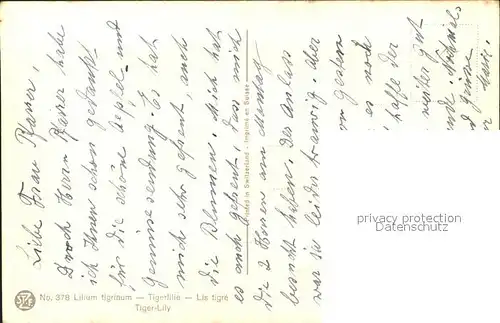 Liebe Frau Pfarrer,
Durch Herrn Pfarrer habe
ich Ihnen schon gedankt
für die schöne Aepfel- und
Gemüsesendung. Es hat
mich sehr gefreut, auch
die Blumen. Mich hat
es auch gefreut, dass mich
die 2 Herren am Montag
besucht haben. Der Anlass
war ja leider traurig. Aber
gestern
es noch
hoffe der
weiter gut
Printed in Switzerland - Imprimé en Suisse
No. 378 Lilium tigrinum — Tigerlilie — Lis tigré
Tiger-Lily
privacy protection
Datenschutz